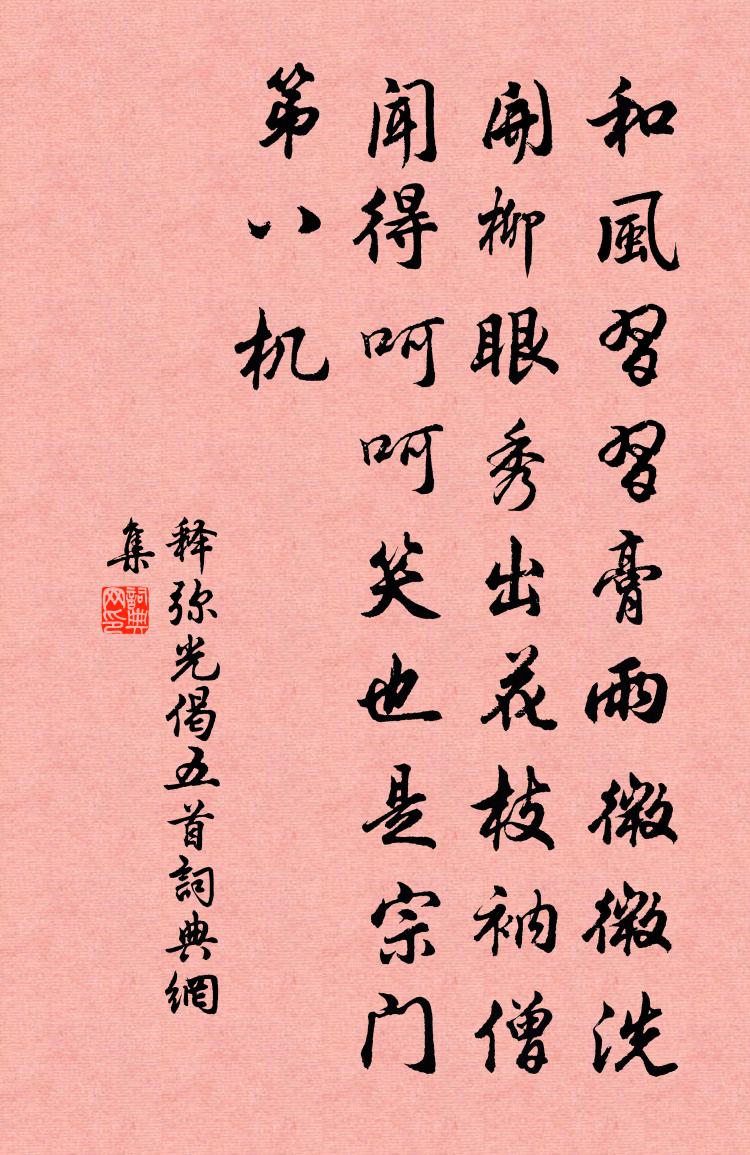 和風習習膏雨微微洗
開柳眼秀出花枝衲僧
闻得呵呵笑也是宗门
第八机
释弥光偈五首詞典網
集
詞典
网印